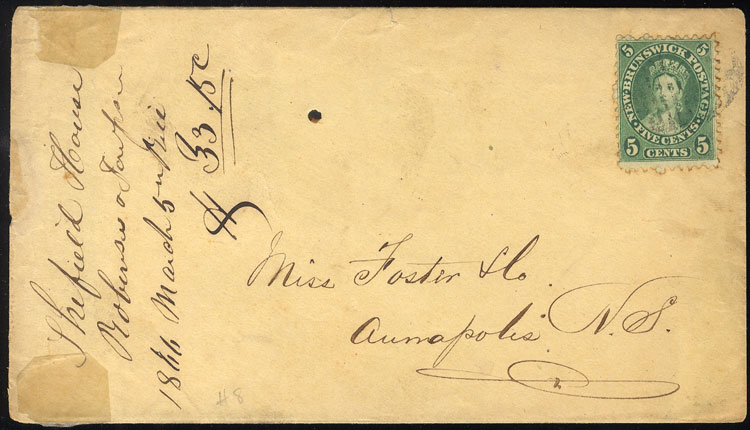 Shefield House
Robertson &
1866 March 5
$ 33.15c
5 5
NEW-BRUNSWICK POSTAGE
FIVE CENTS
5 CENTS 5
Miss Foster & Co.
Annapolis N.S.
#8